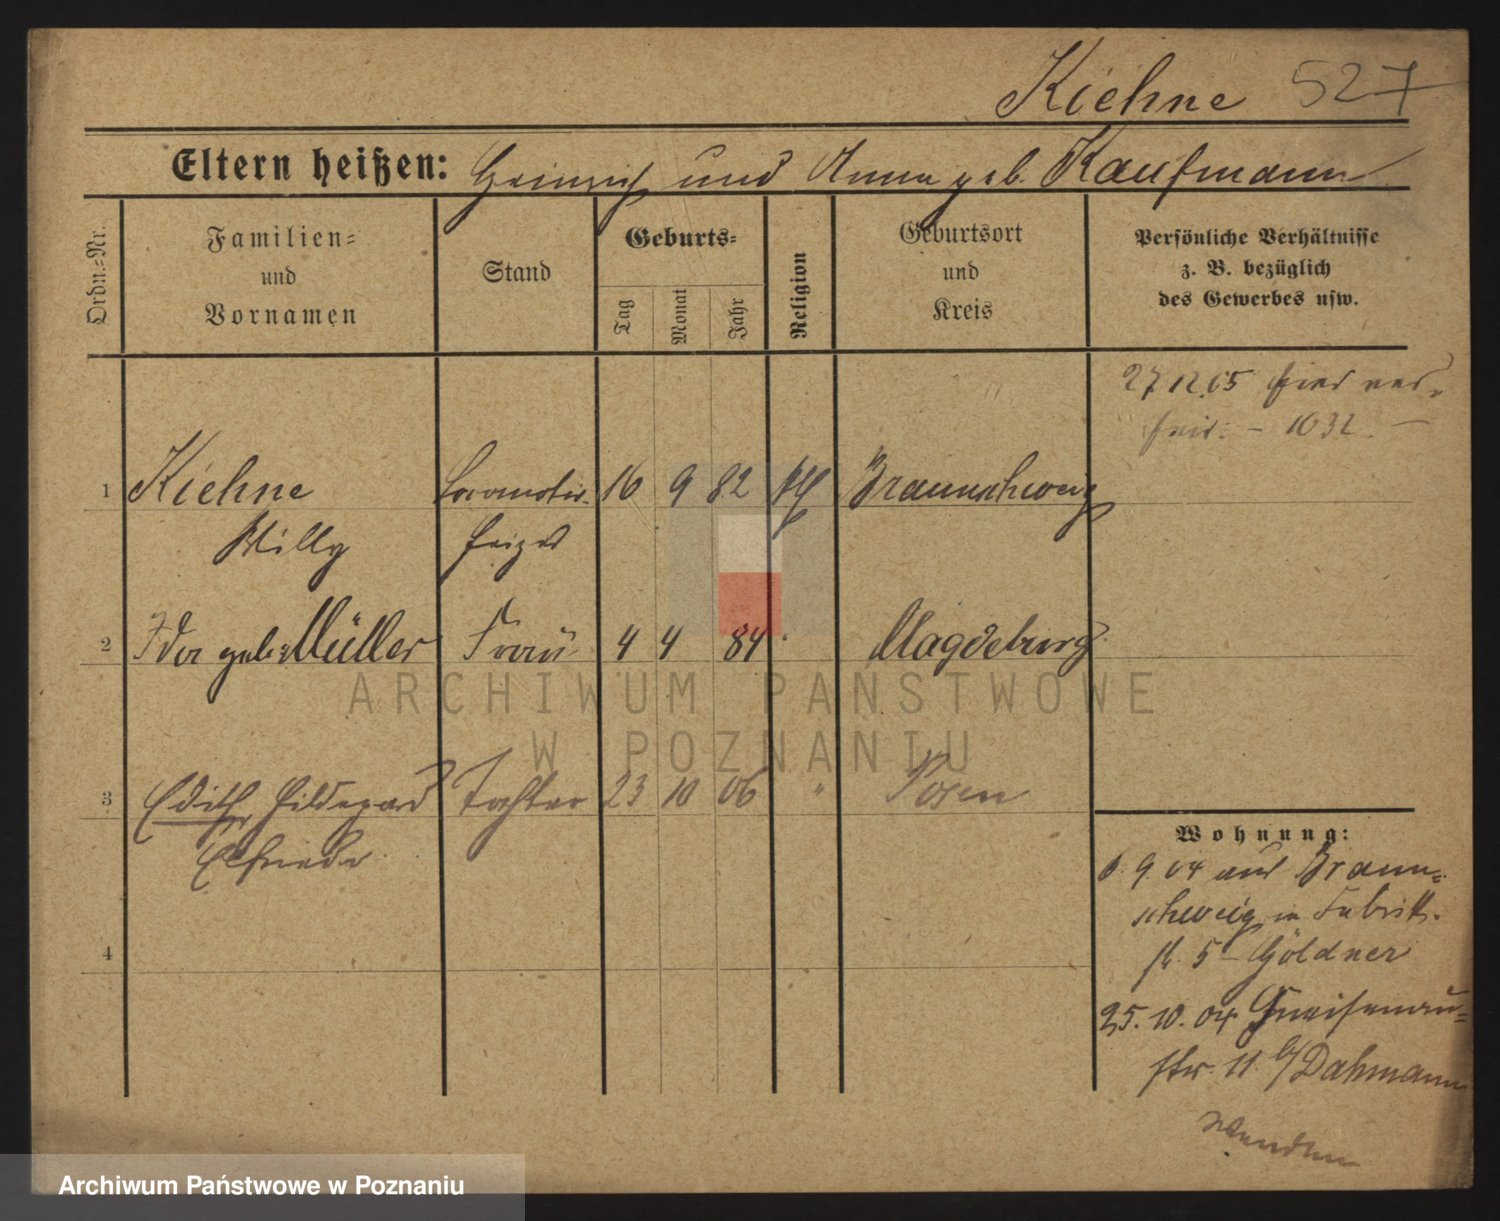 Kiehne 527
Eltern heißen: Heinrich und Anna geb. Kaufmann
Ordn.-Nr.
Familien-
und
Vornamen
Stand
Geburts-
Tag
Monat
Jahr
Religion
Geburtsort
und
Kreis
Persönliche Verhältnisse
z. B. bezüglich
des Gewerbes usw.
27 12 05 hier ver-
heir. - 1632.
1 Kiehne Lokomotiv- 16 9 82 Braunschweig
Willy heizer
2 Ida geb. Müller Frau 4 4 84 Magdeburg
3 Edith Hildegard Tochter 23 10 06 " Posen
Elfrieda
4
Wohnung:
6. 9. 04 aus Braun-
schweig in Fabrik-
str. 5 - Göldner
25. 10. 04 Gneisenau-
str. 11 b/ Dahmann
wenden
ARCHIWUM PAŃSTWOWE
W POZNANIU
Archiwum Państwowe w Poznaniu